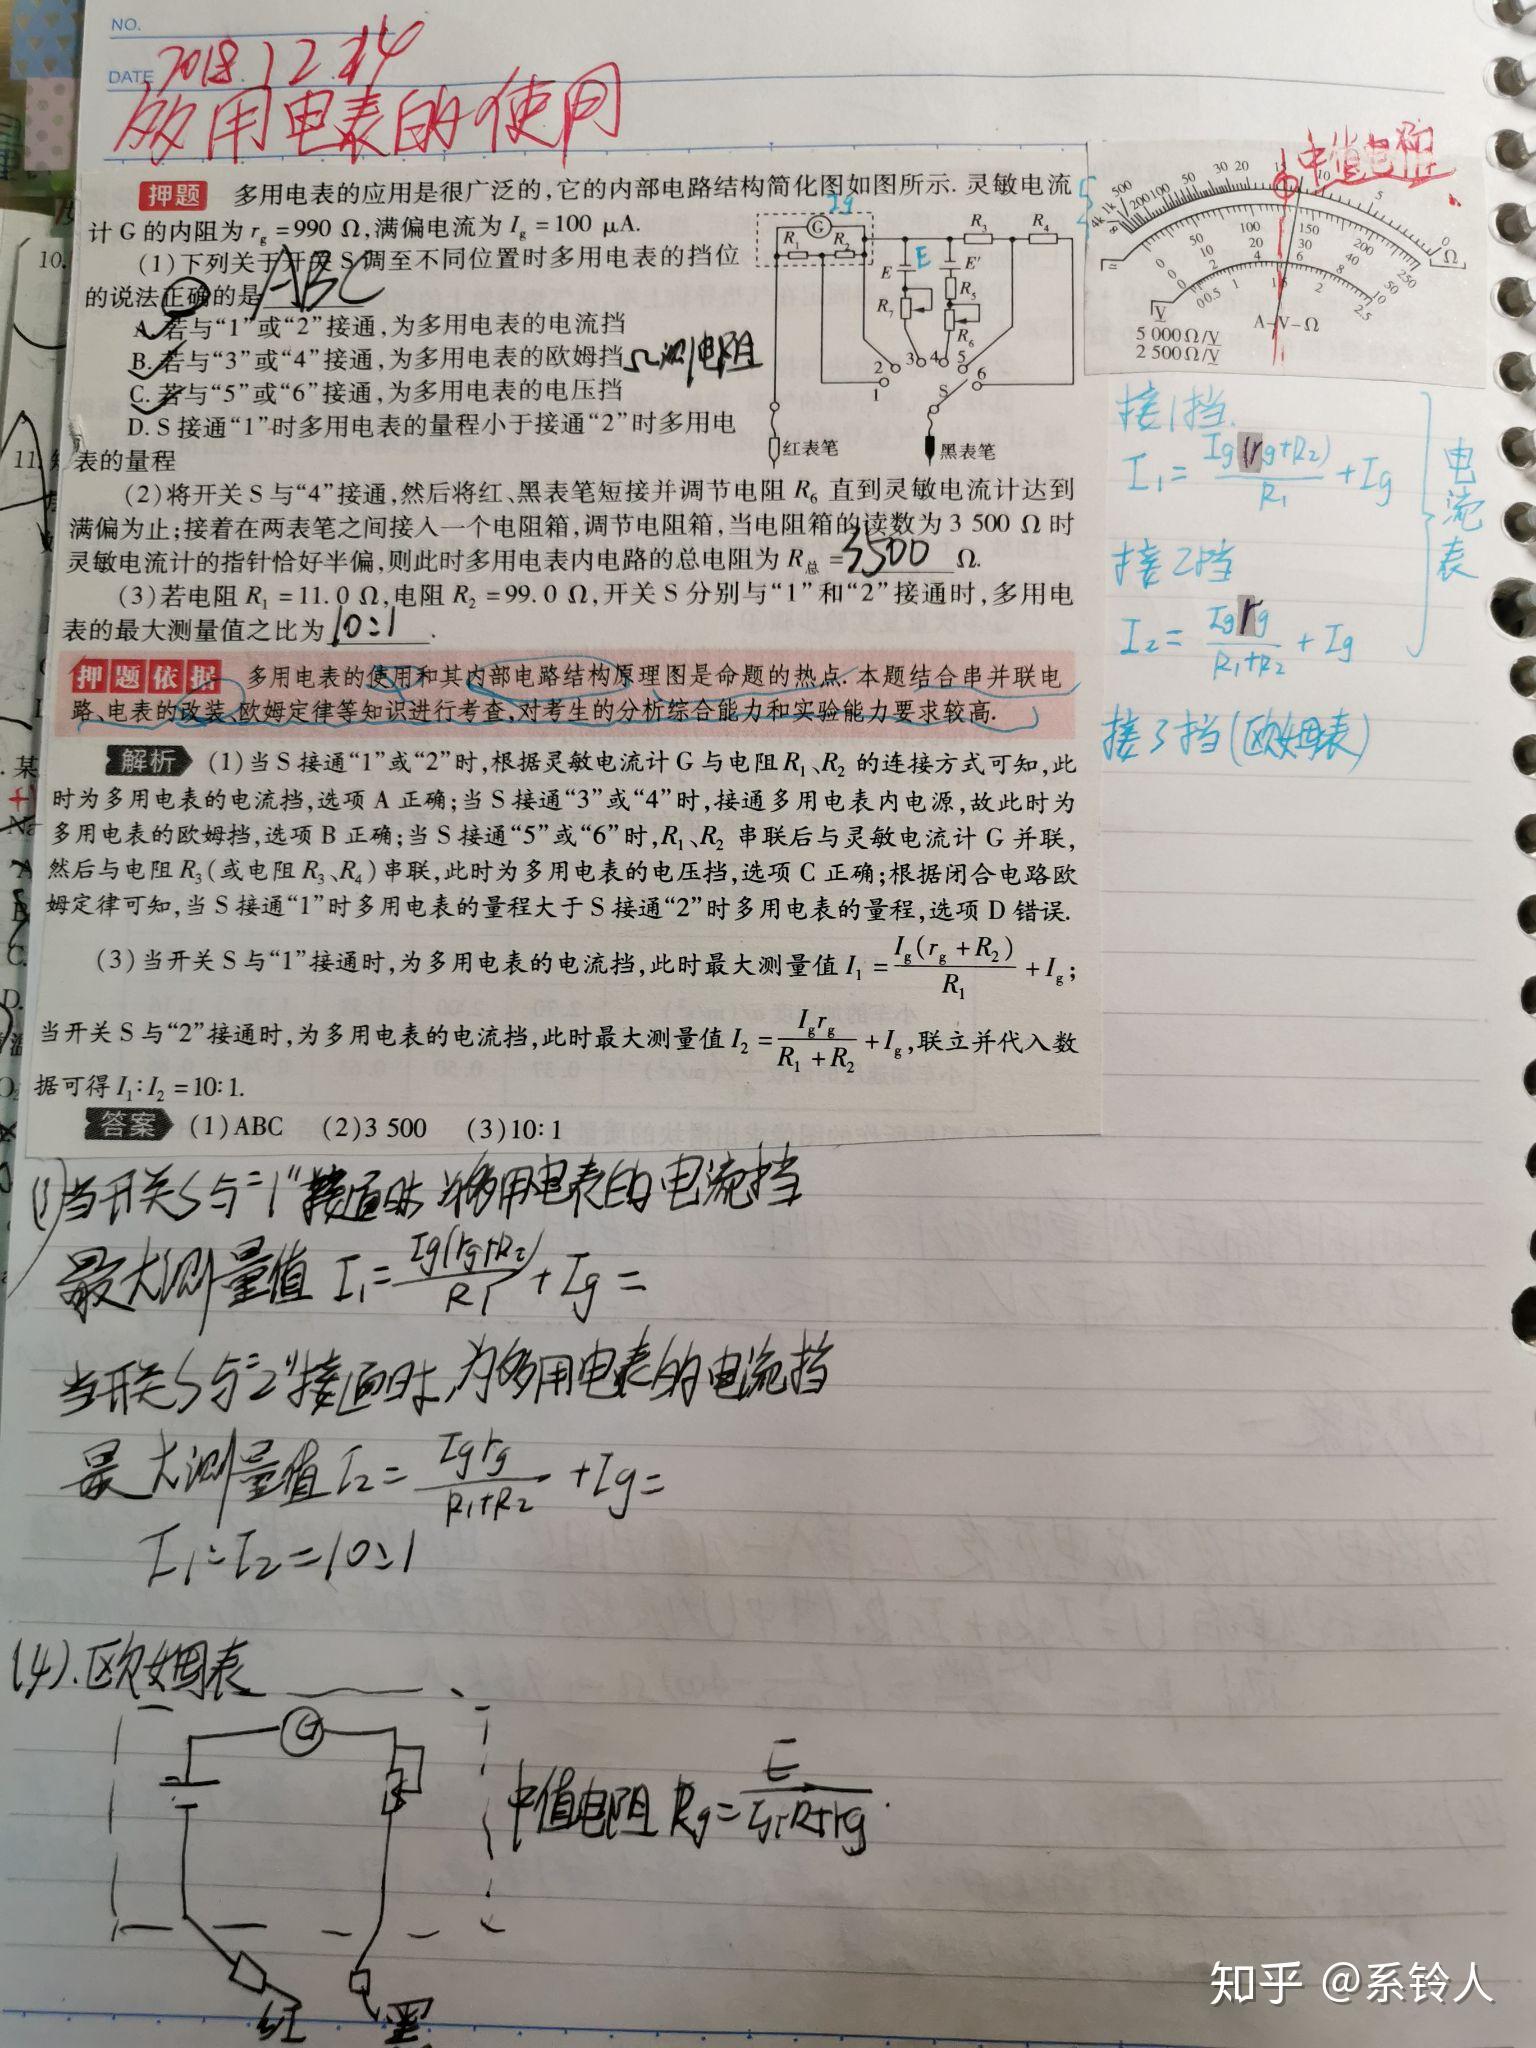 NO.
DATE 2018.12.24
多用电表的使用
押题 多用电表的应用是很广泛的,它的内部电路结构简化图如图所示.灵敏电流
计 G 的内阻为 r_g=990 Ω,满偏电流为 I_g=100 μA.
(1)下列关于开关 S 调至不同位置时多用电表的挡位
的说法正确的是 ABC
A. 若与“1”或“2”接通,为多用电表的电流挡
B. 若与“3”或“4”接通,为多用电表的欧姆挡 Ω测电阻
C. 若与“5”或“6”接通,为多用电表的电压挡
D. S 接通“1”时多用电表的量程小于接通“2”时多用电
表的量程
Ig
G
R1 R2 R3 R4
E E E' R5
R7 R6
1 2 3 4 5 6 S
红表笔 黑表笔
(2)将开关 S 与“4”接通,然后将红、黑表笔短接并调节电阻 R6 直到灵敏电流计达到
满偏为止;接着在两表笔之间接入一个电阻箱,调节电阻箱,当电阻箱的读数为 3 500 Ω 时
灵敏电流计的指针恰好半偏,则此时多用电表内电路的总电阻为 R总=3500 Ω.
(3)若电阻 R1=11.0 Ω,电阻 R2=99.0 Ω,开关 S 分别与“1”和“2”接通时,多用电
表的最大测量值之比为 10:1 .
押题依据 多用电表的使用和其内部电路结构原理图是命题的热点.本题结合串并联电
路、电表的改装、欧姆定律等知识进行考查,对考生的分析综合能力和实验能力要求较高.
解析 (1)当 S 接通“1”或“2”时,根据灵敏电流计 G 与电阻 R1、R2 的连接方式可知,此
时为多用电表的电流挡,选项 A 正确;当 S 接通“3”或“4”时,接通多用电表内电源,故此时为
多用电表的欧姆挡,选项 B 正确;当 S 接通“5”或“6”时,R1、R2 串联后与灵敏电流计 G 并联,
然后与电阻 R3(或电阻 R3、R4)串联,此时为多用电表的电压挡,选项 C 正确;根据闭合电路欧
姆定律可知,当 S 接通“1”时多用电表的量程大于 S 接通“2”时多用电表的量程,选项 D 错误.
(3)当开关 S 与“1”接通时,为多用电表的电流挡,此时最大测量值 I1=I_g(r_g+R2)/R1+I_g;
当开关 S 与“2”接通时,为多用电表的电流挡,此时最大测量值 I2=I_g r_g/(R1+R2)+I_g,联立并代入数
据可得 I1∶I2=10∶1.
答案 (1)ABC (2)3 500 (3)10∶1
中值电阻
4k 1k 500 200 100 50 30 20 15 10 5 0 Ω
0 50 100 150 200 250
0 10 20 30 40 50
0 2 4 6 8 10
0 0.5 1 1.5 2 2.5
V
5 000Ω/V
2 500Ω/V
A-V-Ω
接1挡.
I1=Ig(rg+R2)/R1+Ig
接2挡
I2=Igrg/(R1+R2)+Ig
电流表
接3挡(欧姆表)
当开关S与“1”接通时,为多用电表的电流挡
最大测量值 I1=Ig(rg+R2)/R1+Ig=
当开关S与“2”接通时,为多用电表的电流挡
最大测量值 I2=Igrg/(R1+R2)+Ig=
I1:I2=10:1
(4).欧姆表
G
中值电阻 Rg=
红 黑
10.
11.
某
C.
D.
知乎 @系铃人